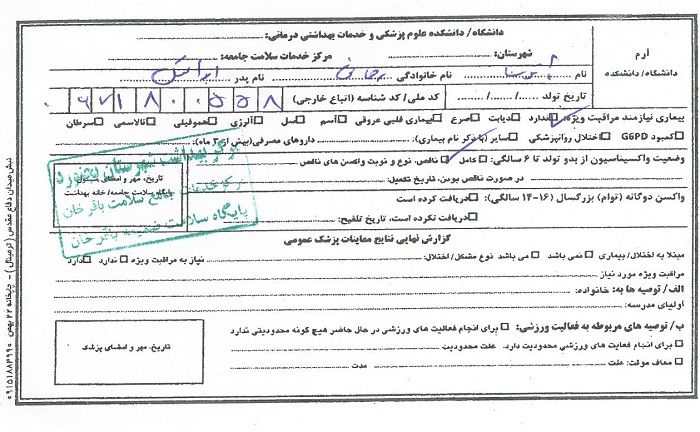 دانشگاه/ دانشکده علوم پزشکی و خدمات بهداشتی درمانی:
آرم
دانشگاه/ دانشکده
شهرستان: مرکز خدمات سلامت جامعه:
نام نام خانوادگی نام پدر
تاریخ تولد ....../....../...... کد ملی/ کد شناسه (اتباع خارجی)
بیماری نیازمند مراقبت ویژه: ندارد دیابت صرع بیماری قلبی عروقی آسم سل آلرژی هموفیلی تالاسمی سرطان
کمبود G6PD اختلال روانپزشکی سایر (با ذکر نام بیماری): داروهای مصرفی (بیش از ۳ ماه):
وضعیت واکسیناسیون از بدو تولد تا ۶ سالگی: کامل ناقص، نوع و نوبت واکسن های ناقص
در صورت ناقص بودن، تاریخ تکمیل:
واکسن دوگانه (توام) بزرگسال (۱۶-۱۴ سالگی): دریافت کرده است
دریافت نکرده است، تاریخ تلقیح:
تاریخ، مهر و امضای
پایگاه سلامت جامعه/ خانه بهداشت
مرکز بهداشت شهرستان بجنورد
مرکز خدمات جامع سلامت باقرخان
پایگاه سلامت ضمیمه باقرخان
گزارش نهایی نتایج معاینات پزشک عمومی
مبتلا به اختلال/ بیماری نمی باشد می باشد نوع مشکل/ اختلال: نیاز به مراقبت ویژه ندارد دارد
مراقبت ویژه مورد نیاز
الف/ توصیه ها به: خانواده:
اولیای مدرسه:
ب/ توصیه های مربوطه به فعالیت ورزشی: برای انجام فعالیت های ورزشی در حال حاضر هیچ گونه محدودیتی ندارد
برای انجام فعالیت های ورزشی محدودیت دارد. علت محدودیت
معاف موقت: علت مدت
تاریخ، مهر و امضای پزشک
نبش میدان دفاع مقدس (ترمینال) - چاپخانه ۲۲ بهمن ۰۹۱۵۱۸۸۴۹۹۰